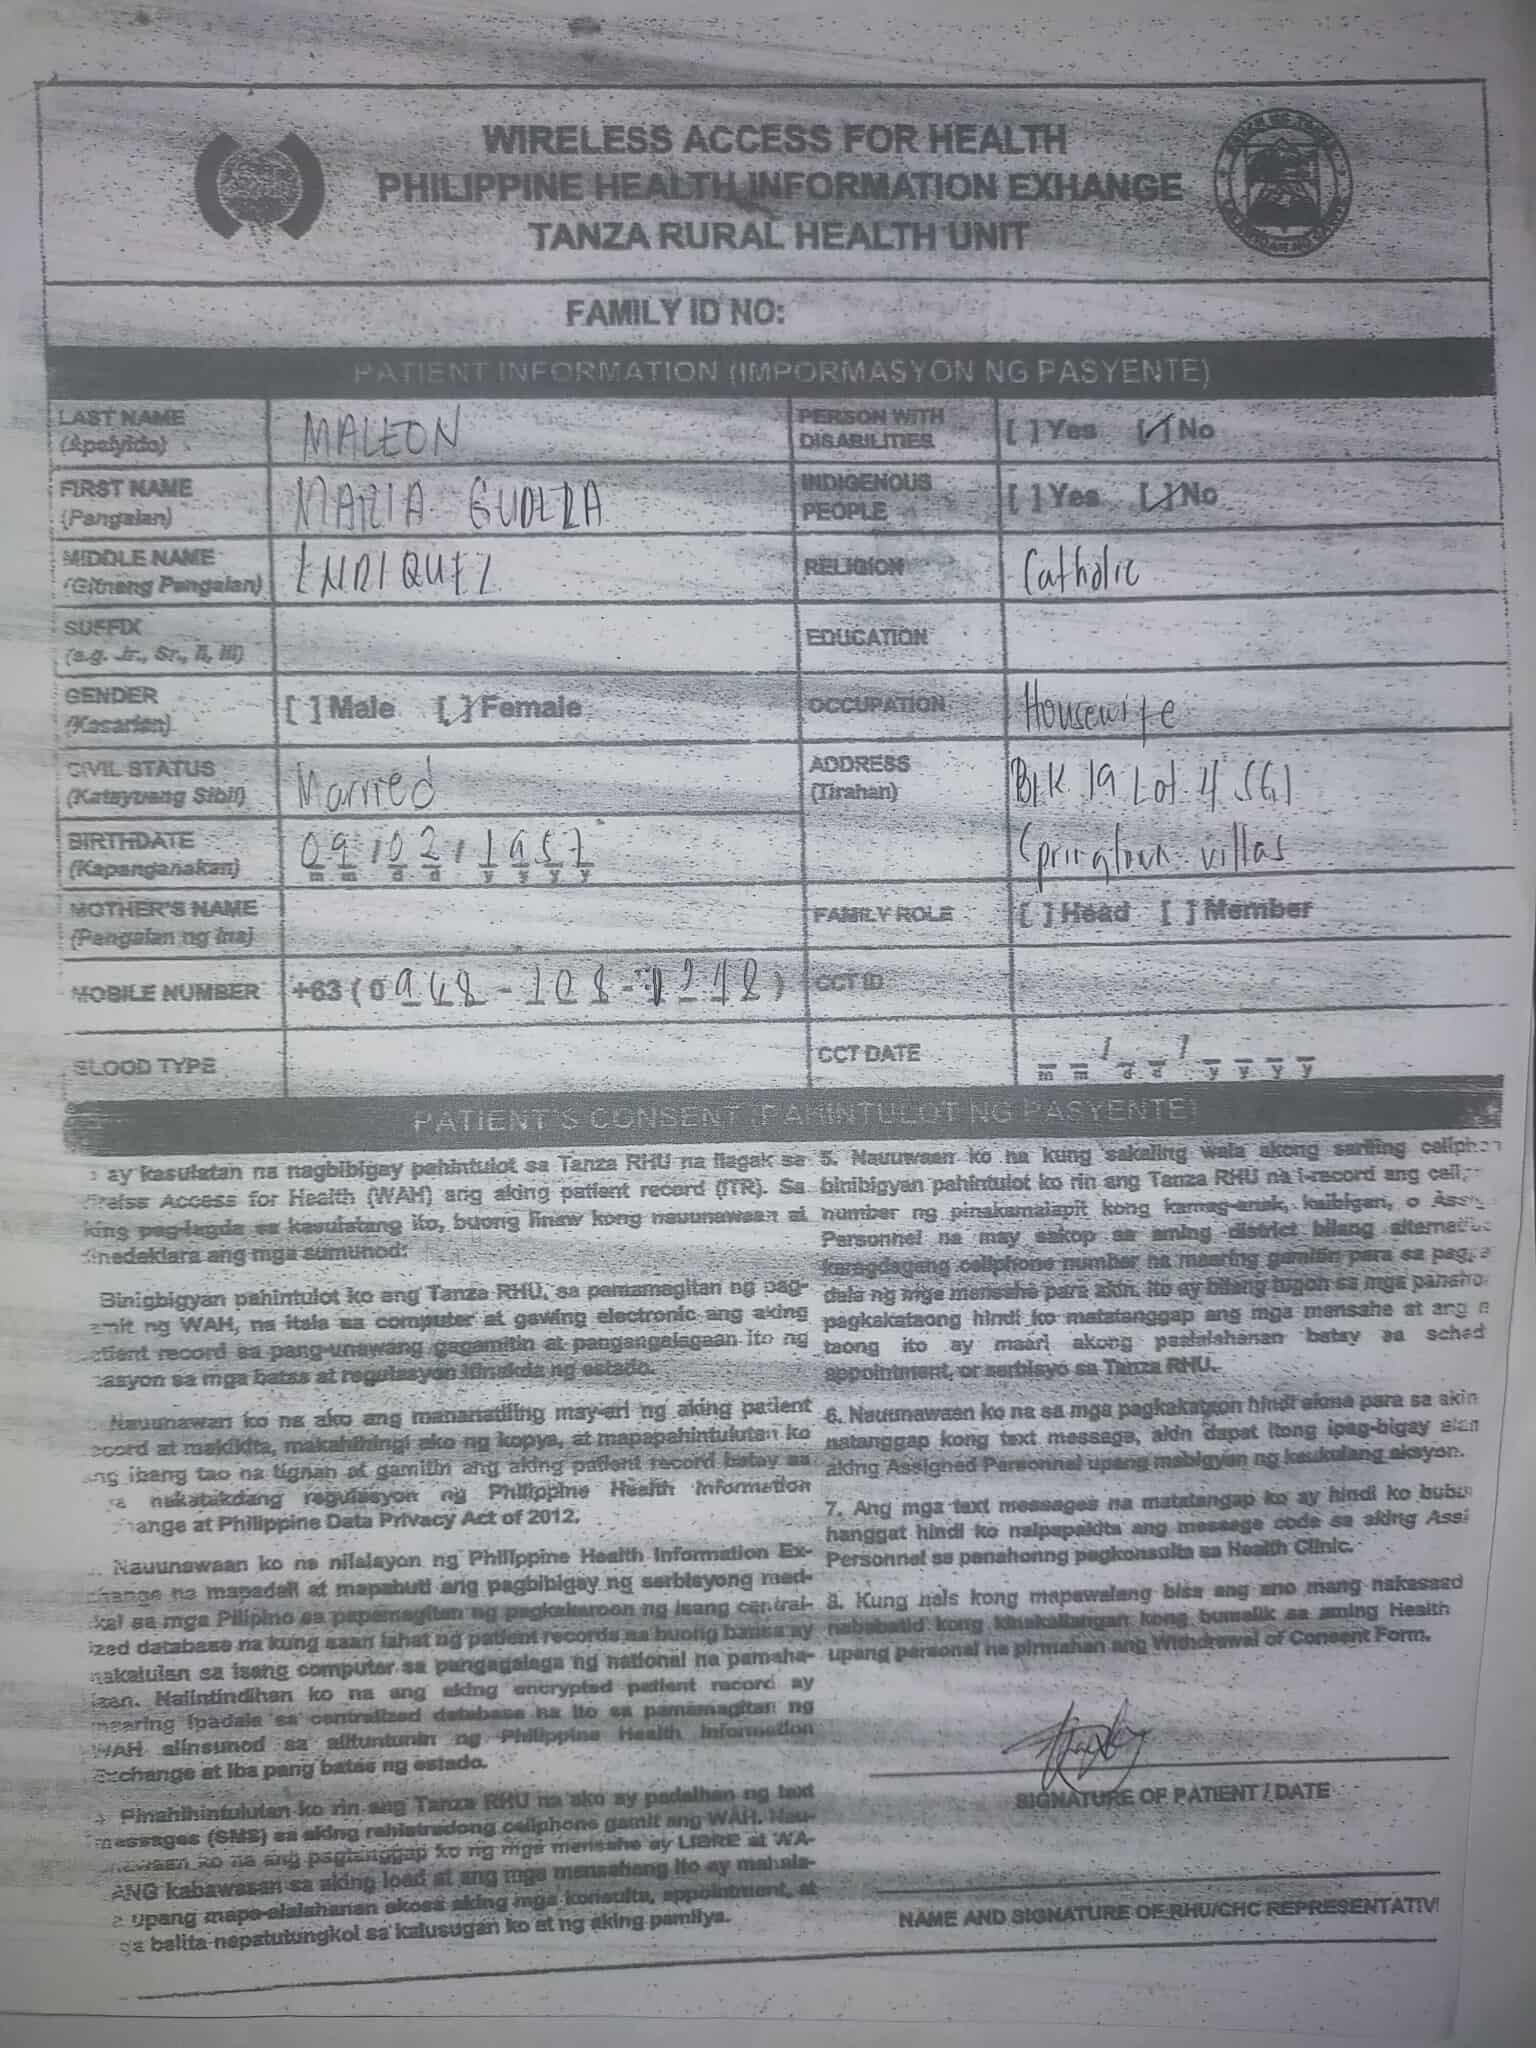 WIRELESS ACCESS FOR HEALTH
PHILIPPINE HEALTH INFORMATION EXHANGE
TANZA RURAL HEALTH UNIT
FAMILY ID NO:
PATIENT INFORMATION (IMPORMASYON NG PASYENTE)
LAST NAME (Apelyido) MALEON
PERSON WITH DISABILITIES [ ] Yes [✓] No
FIRST NAME (Pangalan) MARIA
INDIGENOUS PEOPLE [ ] Yes [✓] No
MIDDLE NAME (Gitnang Pangalan) ENRIQUEZ
RELIGION Catholic
SUFFIX (e.g. Jr., Sr., II, III)
EDUCATION
GENDER (Kasarian) [ ] Male [✓] Female
OCCUPATION Housewife
CIVIL STATUS (Katayuang Sibil) Married
ADDRESS (Tirahan) Blk 19 Lot 4
Springtown villas
BIRTHDATE (Kapanganakan) 09/02/1957
m m d d y y y y
MOTHER'S NAME (Pangalan ng Ina)
FAMILY ROLE [ ] Head [ ] Member
MOBILE NUMBER +63 (0
CCT ID
BLOOD TYPE
CCT DATE / /
m m d d y y y y
PATIENT'S CONSENT (PAHINTULOT NG PASYENTE)
ay kasulatan na nagbibigay pahintulot sa Tanza RHU na ilagak sa
Access for Health (WAH) ang aking patient record (ITR). Sa
pag-lagda sa kasulatang ito, buong linaw kong nauunawaan at
ang mga sumunod:
Binigbigyan pahintulot ko ang Tanza RHU, sa pamamagitan ng pag-
ng WAH, na itala sa computer at gawing electronic ang aking
record sa pang-unawang gagamitin at pangangalagaan ito ng
sa mga batas at regulasyon itinakda ng estado.
Nauunawan ko na ako ang mananatiling may-ari ng aking patient
at makikita, makahihingi ako ng kopya, at mapapahintulutan ko
ang ibang tao na tignan at gamitin ang aking patient record batay sa
nakatakdang regulasyon ng Philippine Health Information
at Philippine Data Privacy Act of 2012.
Nauunawaan ko na nilalayon ng Philippine Health Information Ex-
change na mapadali at mapabuti ang pagbibigay ng serbisyong med-
sa mga Pilipino sa papamagitan ng pagkakaroon ng isang central-
ized database na kung saan lahat ng patient records sa buong bansa ay
nakalulan sa isang computer sa pangagalaga ng national na pamaha-
Naiintindihan ko na ang aking encrypted patient record ay
maaring ipadala sa centralized database na ito sa pamamagitan ng
WAH alinsunod sa alituntunin ng Philippine Health Information
Exchange at iba pang batas ng estado.
Pinahihintulutan ko rin ang Tanza RHU na ako ay padalhan ng text
messages (SMS) sa aking rehistradong cellphone gamit ang WAH. Nau-
ko na ang pagtanggap ko ng mga mensahe ay LIBRE at WA-
kabawasan sa aking load at ang mga mensaheng ito ay mahala-
upang mapa-alalahanan akosa aking mga konsulta, appointment, at
balita napatutungkol sa kalusugan ko at ng aking pamilya.
5. Nauuwaan ko na kung sakaling wala akong sariling
binibigyan pahintulot ko rin ang Tanza RHU na i-record ang
number ng pinakamalapit kong kamag-anak, kaibigan, o
Personnel na may sakop sa aming district bilang
karagdagang cellphone number na maaring gamitin para sa
dala ng mga mensahe para akin. Ito ay bilang tugon sa mga
pagkakataong hindi ko matatanggap ang mga mensahe at ang
taong ito ay maari akong paalalahanan batay sa
appointment, or serbisyo sa Tanza RHU.
6. Nauunawaan ko na sa mga pagkakatyon hindi akma para sa akin
natanggap kong text message, akin dapat itong ipag-bigay
aking Assigned Personnel upang mabigyan ng kaukulang aksyon.
7. Ang mga text messages na matatangap ko ay hindi ko
hanggat hindi ko naipapakita ang message code sa aking
Personnel sa panahonng pagkonsulta sa Health Clinic.
8. Kung nais kong mapawalang bisa ang ano mang nakasaad
nababatid kong kinakailangan kong bumalik sa aming Health
upang personal na pirmahan ang Withdrawal of Consent Form.
SIGNATURE OF PATIENT / DATE
NAME AND SIGNATURE OF RHU/CHC